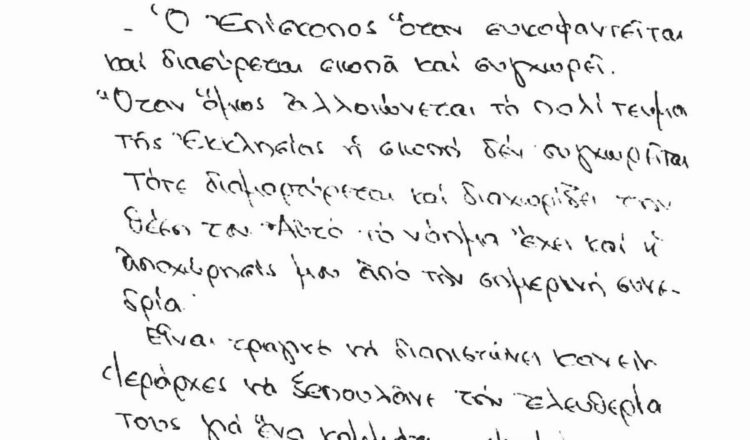 - Ὁ Ἐπίσκοπος ὅταν συκοφαντεῖται
καί διασύρεται σιωπᾶ καί συγχωρεῖ.
Ὅταν ὅμως ἀλλοιώνεται τό πολίτευμα
τῆς Ἐκκλησίας ἡ σιωπή δέν συγχωρεῖται
τότε διαμαρτύρεται καί διαχωρίζει την
θέσι του. Αὐτό τό νόημα ἔχει καί ἡ
ἀποχώρησίς μου ἀπό τήν σημερινή συνε-
δρία.
Εἶναι τραγικό νά διαπιστώνει κανείς
Ἱεράρχες νά ξεπουλᾶνε τήν ἐλευθερία
τους γιά ἕνα